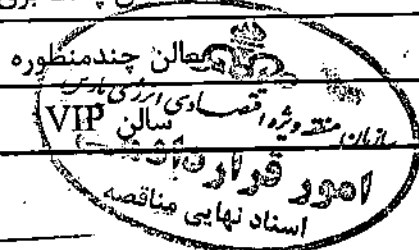 سالن چندمنظوره
سالن VIP
سازمان منطقه ویژه اقتصادی انرژی پارس
امور قراردادها
اسناد نهایی مناقصه